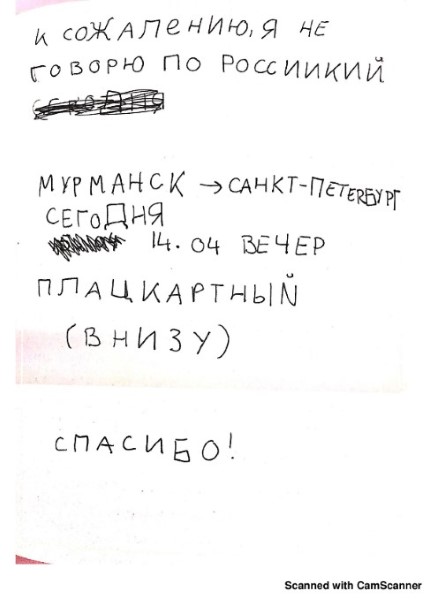 К СОЖАЛЕНИЮ, Я НЕ
ГОВОРЮ ПО РОССИИКИЙ
МУРМАНСК → САНКТ-ПЕТЕРБУРГ
СЕГОДНЯ
14.04 ВЕЧЕР
ПЛАЦКАРТНЫЙ
(ВНИЗУ)
СПАСИБО!
Scanned with CamScanner